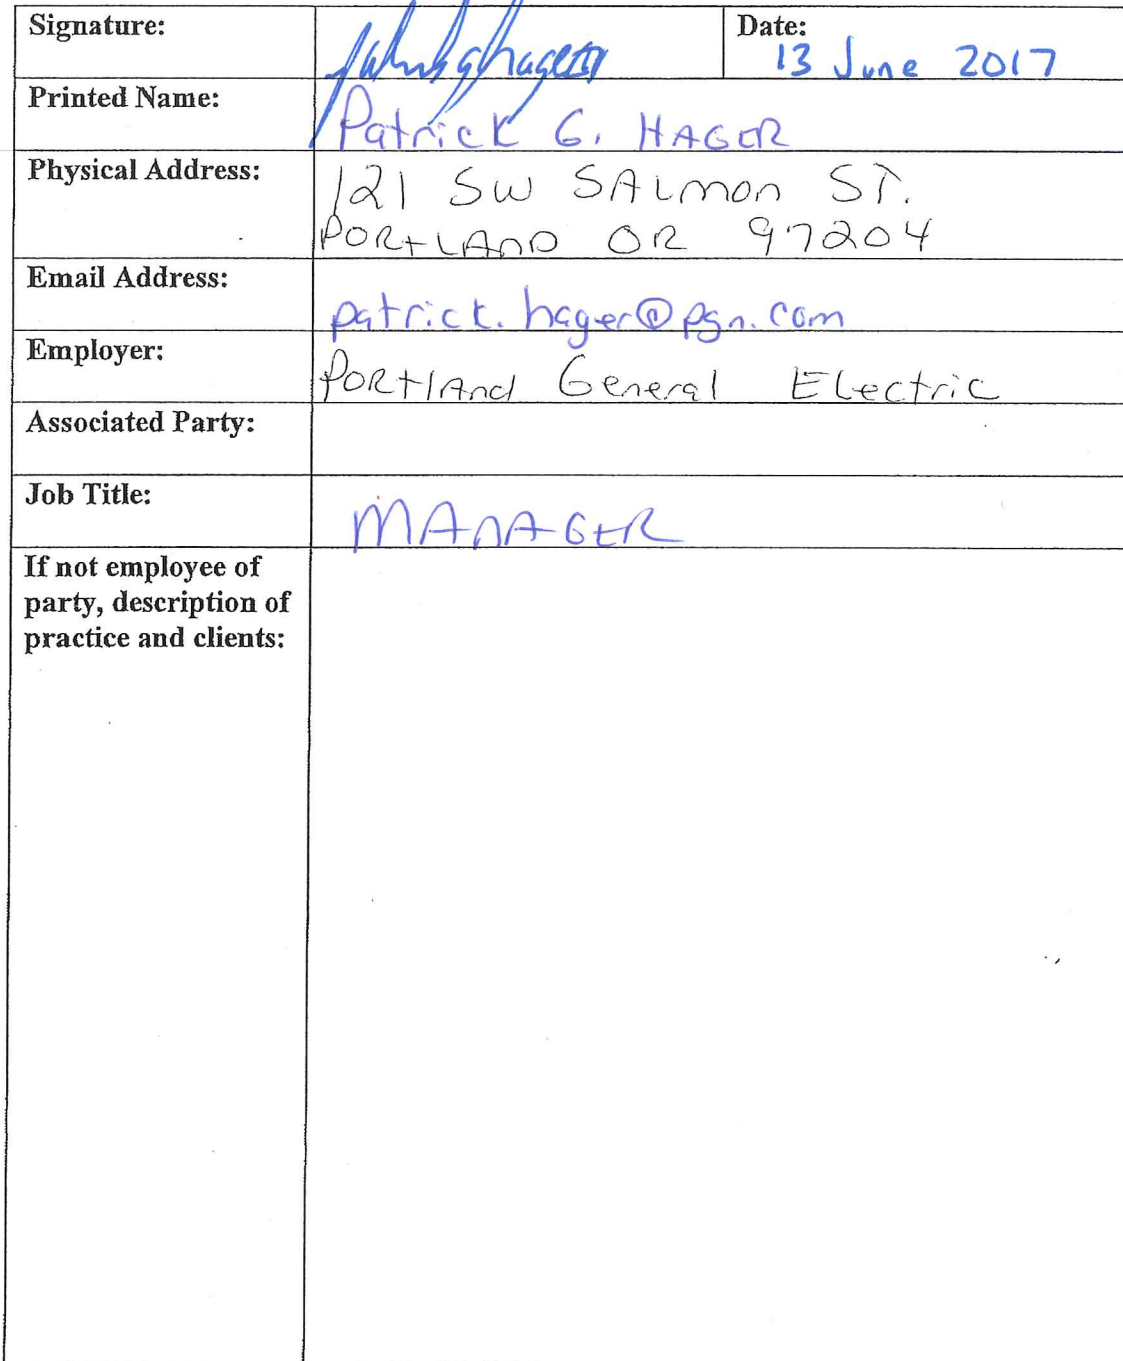 Signature:
Date:
13 June 2017
Printed Name:
Patrick G. HAGER
Physical Address:
121 SW SALmon ST.
PORtLAnD OR 97204
Email Address:
patrick.hager@pgn.com
Employer:
PORtlAnd General Electric
Associated Party:
Job Title:
MAnAGER
If not employee of
party, description of
practice and clients: